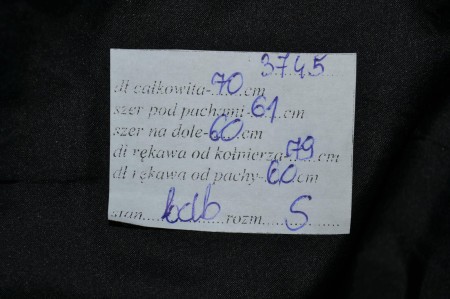 3745
dł całkowita-70cm
szer pod pachami-61cm
szer na dole-60cm
dł rękawa od kołnierza-79cm
dł rękawa od pachy-60cm
stan......bdb......rozm......S